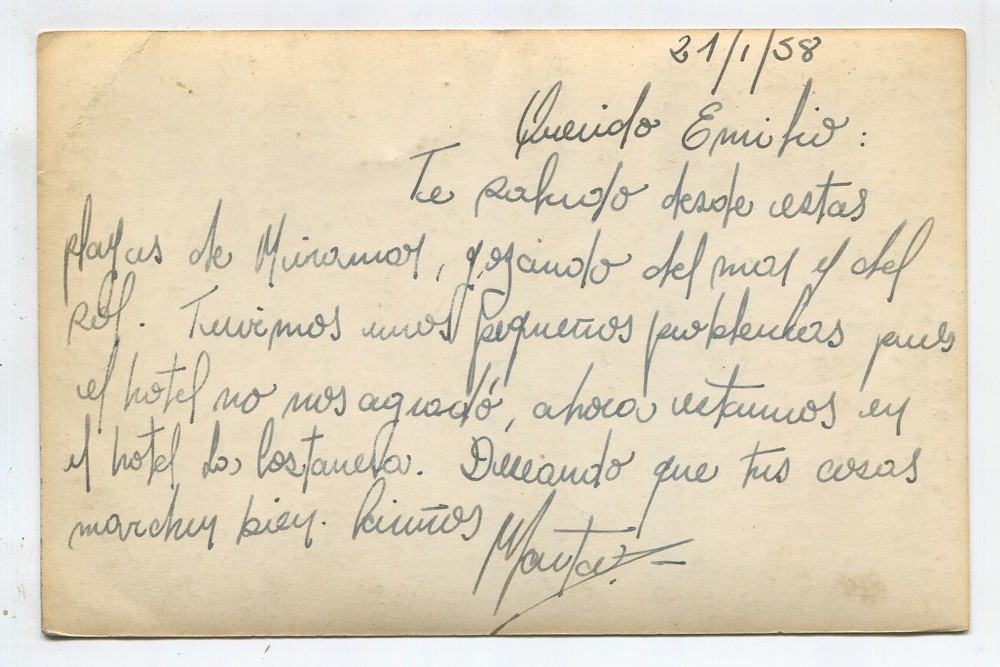 21/1/58
Querido Emilio:
Te saludo desde estas
playas de Miramar, gozando del mar y del
sol. Tuvimos unos pequeños problemas pues
el hotel no nos agradó, ahora estamos en
el hotel La Costanera. Deseando que tus cosas
marchen bien. Cariños
Marta